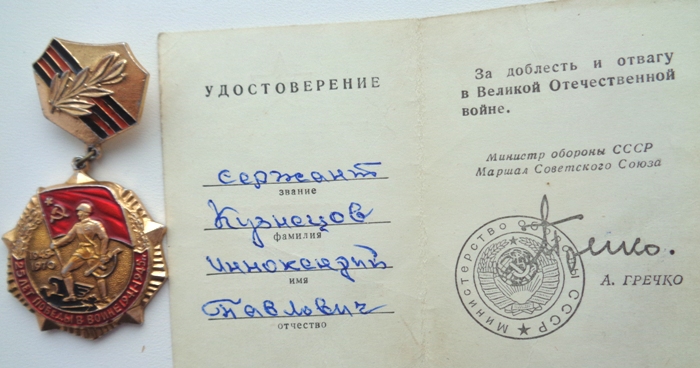 25 ЛЕТ ПОБЕДЫ В ВОЙНЕ
1945
1970
УДОСТОВЕРЕНИЕ
сержант
звание
Кузнецов
фамилия
Иннокентий
имя
Павлович
отчество
За доблесть и отвагу
в Великой Отечественной
войне.
Министр обороны СССР
Маршал Советского Союза
Министерство Обороны СССР
А. ГРЕЧКО